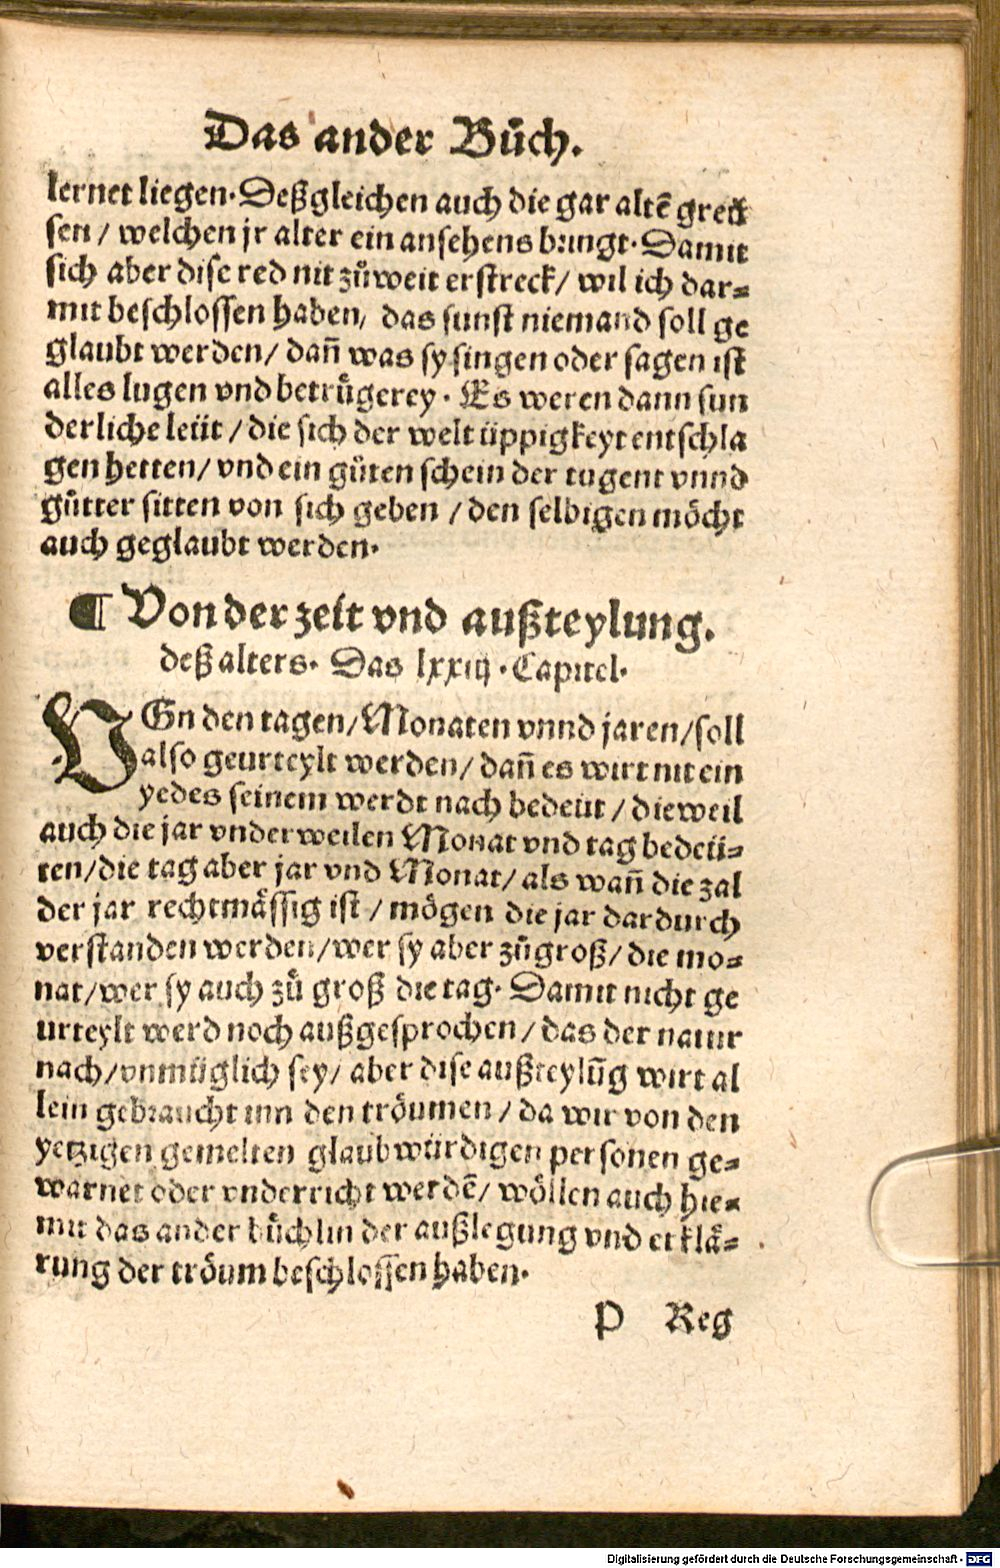 Das ander Bůch.
lernet liegen. Deßgleichen auch die gar altē greü
sen / welchen jr alter ein ansehens bringt. Damit
sich aber dise red nit zůweit erstreck / wil ich dar⸗
mit beschlossen haben, das sunst niemand soll ge
glaubt werden / dañ was sy singen oder sagen ist
alles lugen vnd betrůgerey. Es weren dann sun
derliche leüt / die sich der welt üppigkeyt entschla
gen hetten / vnd ein gůten schein der tugent vnnd
gůtter sitten von sich geben / den selbigen möcht
auch geglaubt werden.
¶ Von der zeit vnd außteylung.
deß alters. Das lxxiij. Capitel.
VOn den tagen / Monaten vnnd jaren / soll
also geurteylt werden / dañ es wirt nit ein
yedes seinem werdt nach bedeüt / dieweil
auch die jar vnderweilen Monat vnd tag bedeü⸗
ten / die tag aber jar vnd Monat / als wañ die zal
der jar rechtmässig ist / mögen die jar dardurch
verstanden werden / wer sy aber zůgroß / die mo⸗
nat / wer sy auch zů groß die tag. Damit nicht ge
urteylt werd noch außgesprochen / das der natur
nach / vnmüglich sey / aber dise außteylūg wirt al
lein gebraucht inn den tröumen / da wir von den
yetzigen gemelten glaubwürdigen personen ge⸗
warnet oder vnderricht werdē / wöllen auch hie⸗
mit das ander büchlin der außlegung vnd erklä⸗
rung der tröum beschlossen haben.
P Reg
Digitalisierung gefördert durch die Deutsche Forschungsgemeinschaft - DFG